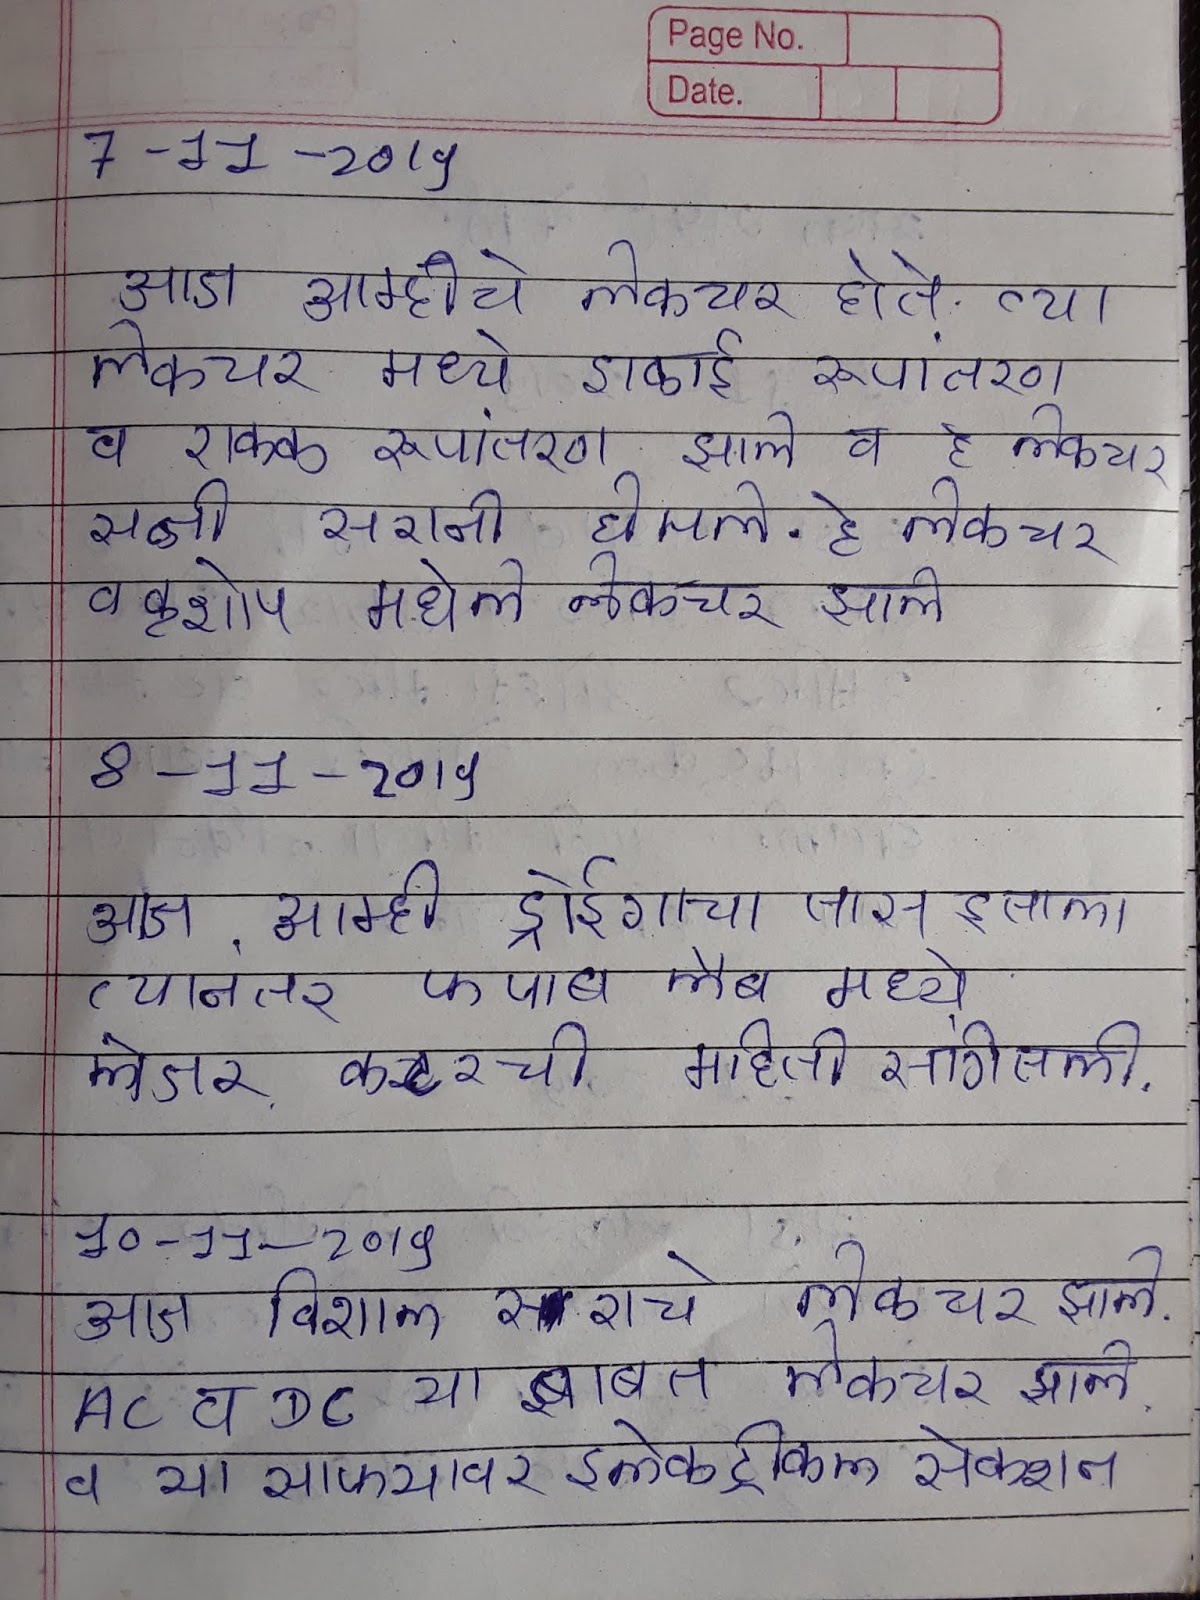 Page No.
Date.
7-11-2019
आज आम्हीचे लेकचर होते. त्या
लेकचर मध्ये इकाई रूपांतरण
व रूपांतरण झाले व हे लेकचर
सरानी घेतले. हे लेकचर
वकृशोप मधेले लेकचर झाले
8-11-2019
आज आम्ही ड्रोईगाचा तास इताला
त्यानंतर फ पाब लैब मध्ये
लेजर कटरची माहिती सांगितली.
10-11-2019
आज विशाल सराचे लेकचर झाले.
AC व DC या बाबत लेकचर झाले.
व या इलेकट्रीकल सेकशन